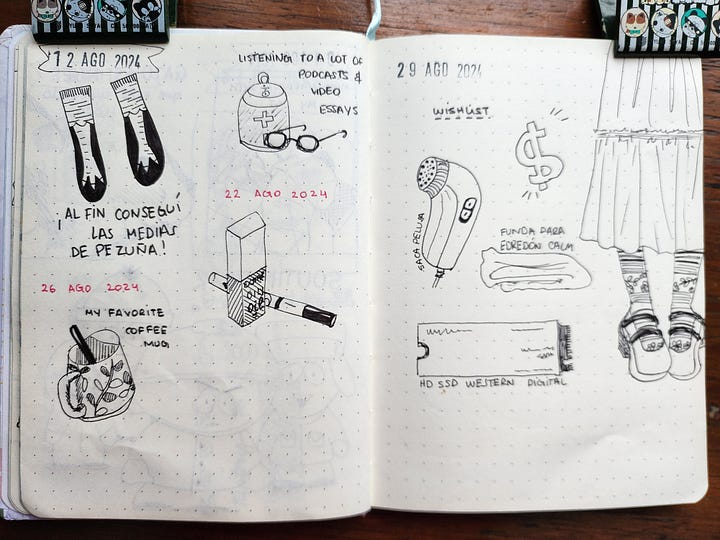 12 AGO 2024
¡AL FIN CONSEGUÍ
LAS MEDIAS
DE PEZUÑA!
LISTENING TO A LOT OF
PODCASTS &
VIDEO
ESSAYS
22 AGO 2024
26 AGO 2024
MY FAVORITE
COFFEE
MUG
29 AGO 2024
WISHLIST
$
SACA PELUSA
FUNDA PARA
EDREDÓN CALM
HD SSD WESTERN DIGITAL